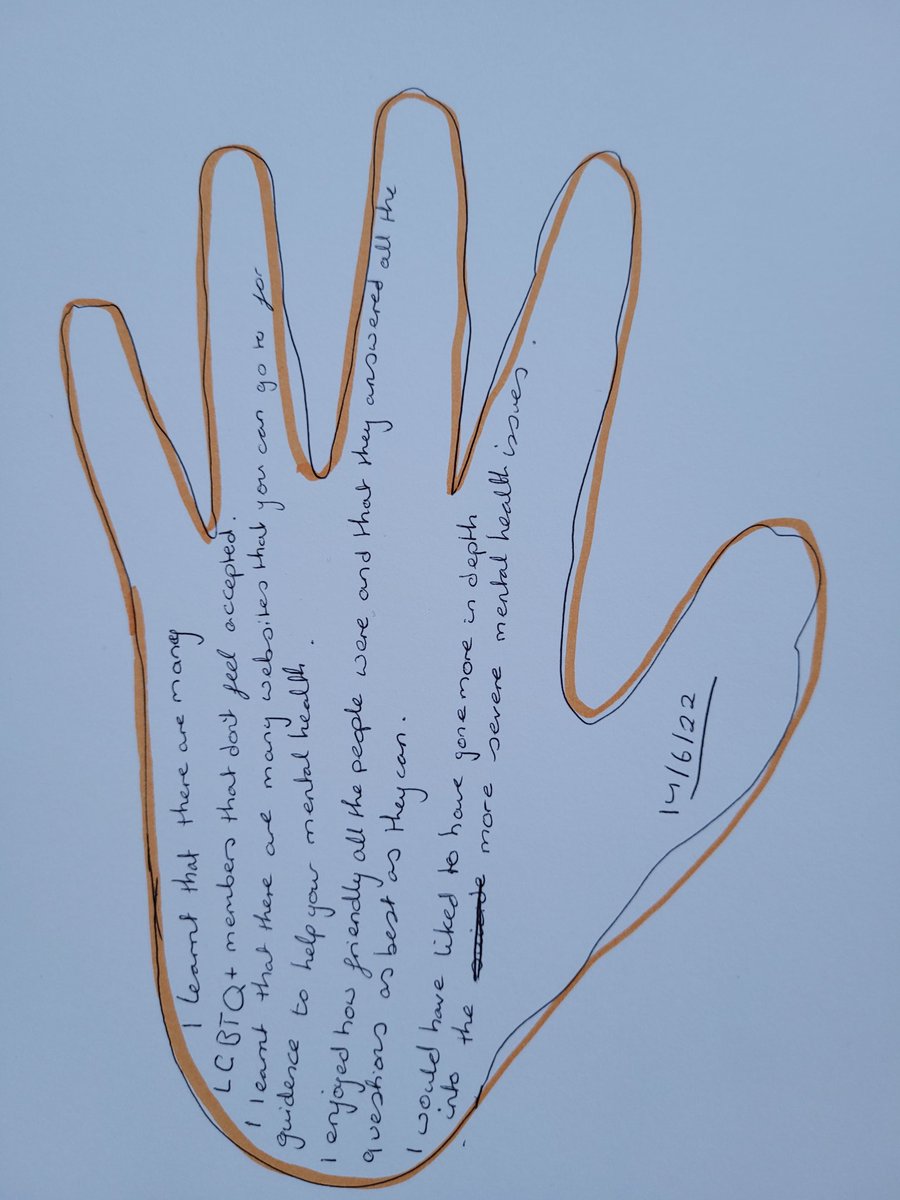 I learnt that there are many
LGBTQ+ members that don't feel accepted.
I learnt that there are many websites that you can go to for
guidence to help your mental health.
I enjoyed how friendly all the people were and that they answered all the
questions as best as they can.
I would have liked to have gone more in depth
into the more severe mental health issues.
14/6/22